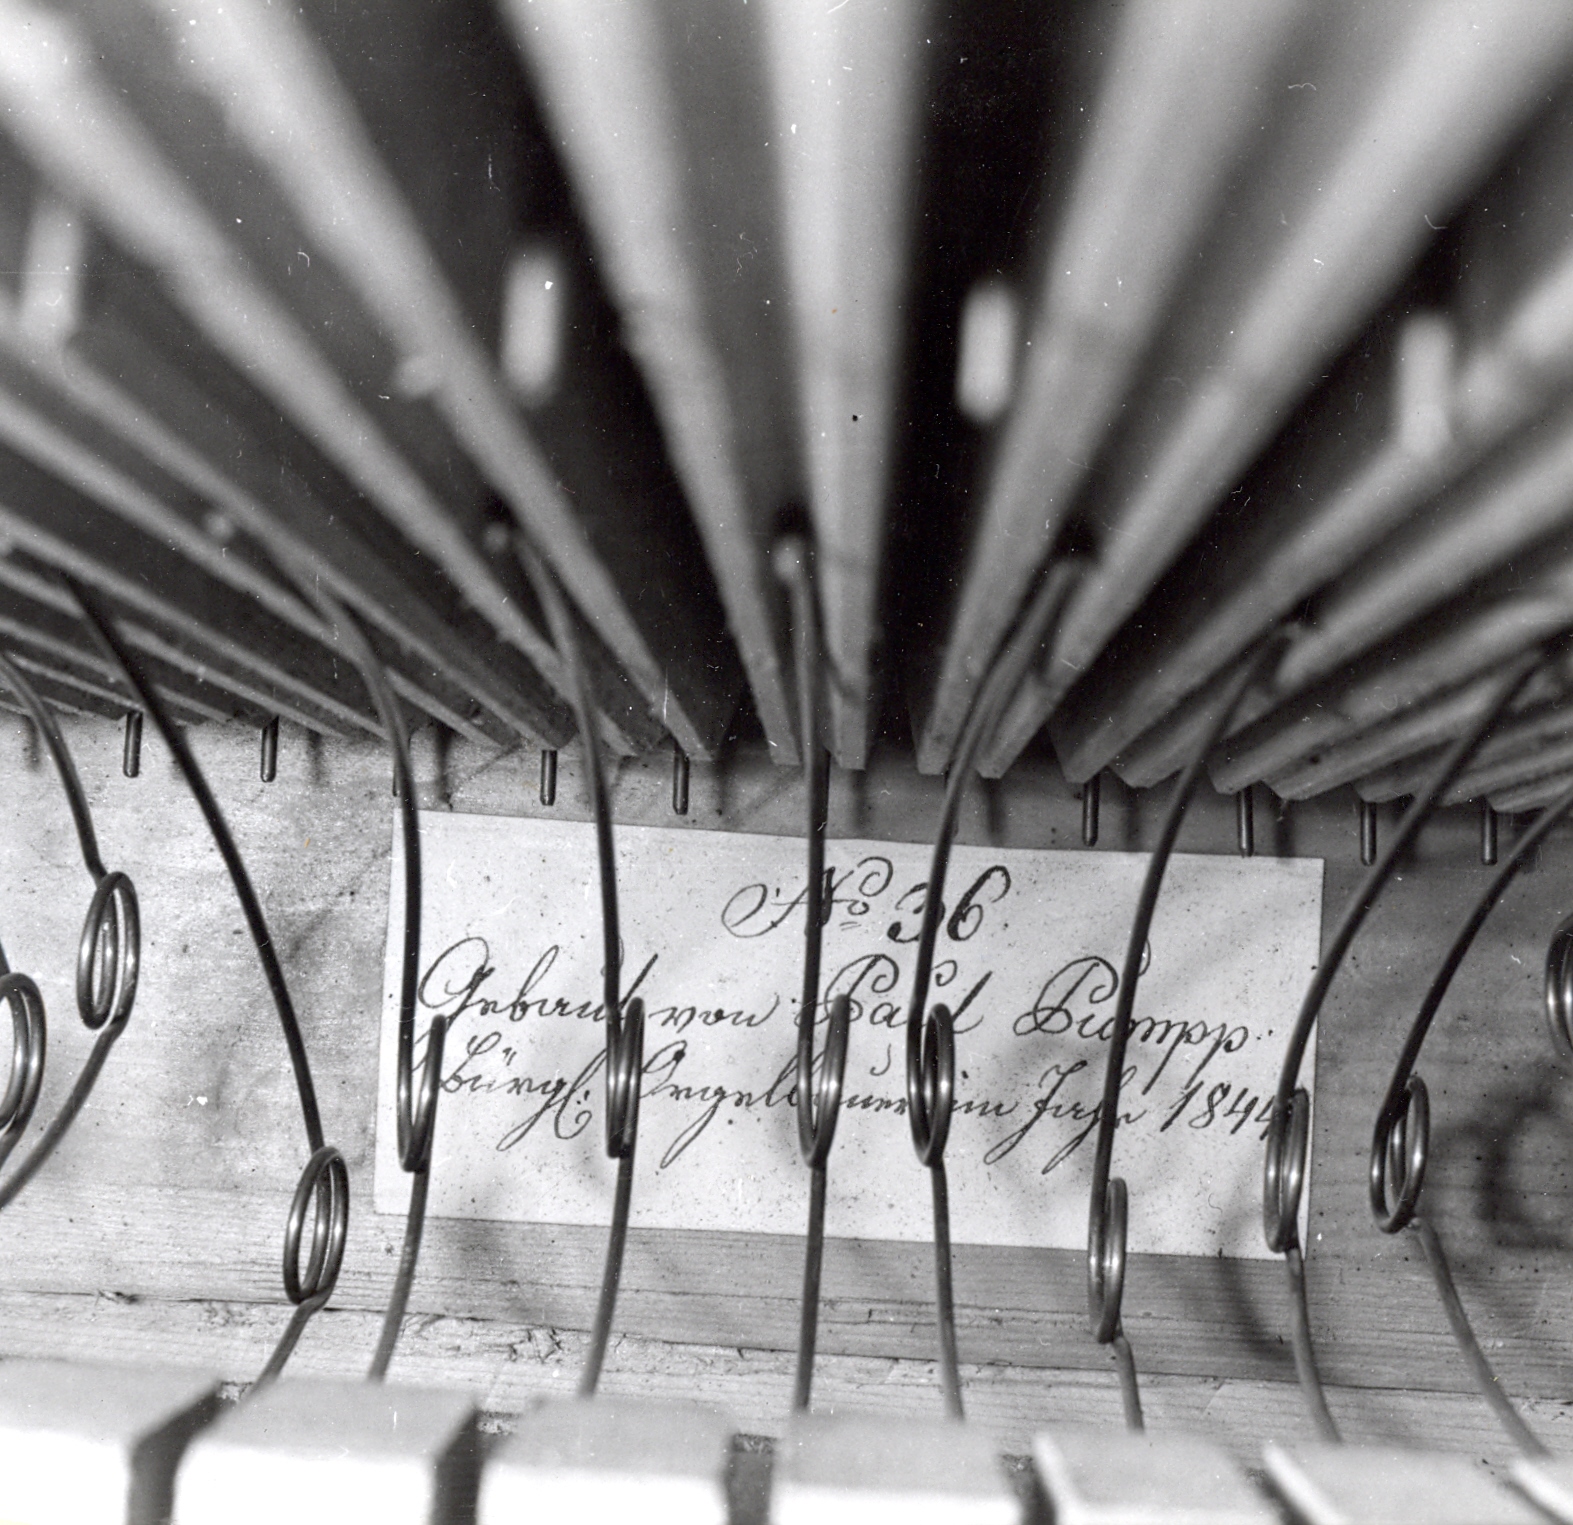 No 36
Gebaut von Paul Pumpp.
Bürgl. Orgelbauer im Jahr 1844